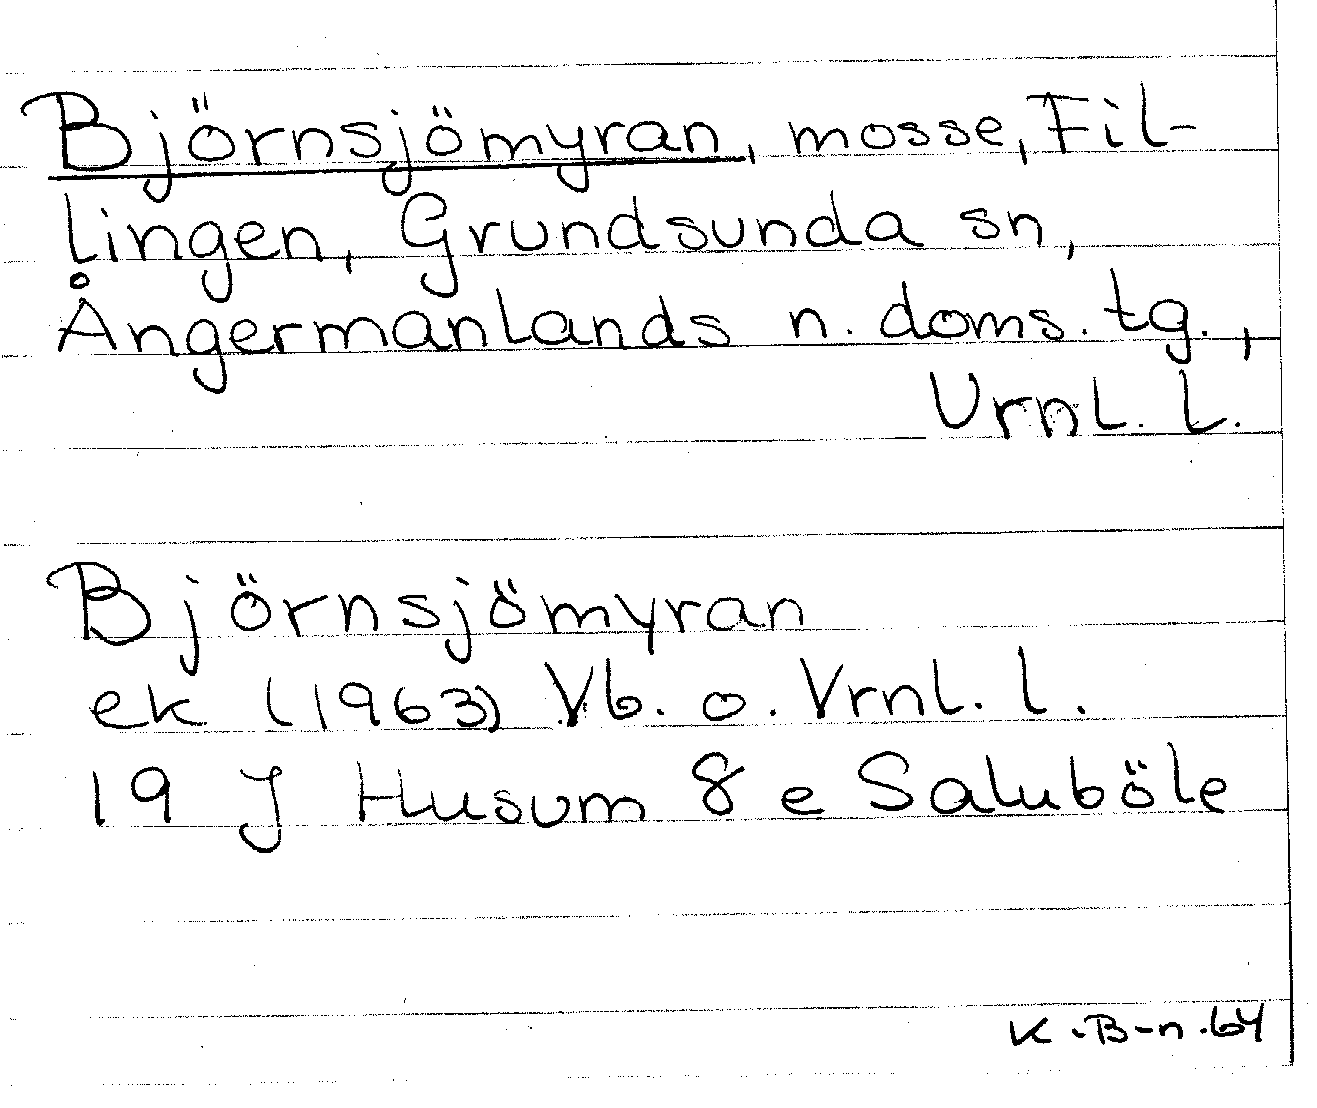 Björnsjömyran, mosse, Fil-
lingen, Grundsunda sn,
Ångermanlands n. doms. tg.,
Vrnl. l.
Björnsjömyran
ek (1963) Vb. o. Vrnl. l.
19 J Husum 8 e Saluböle
K.B-n.64